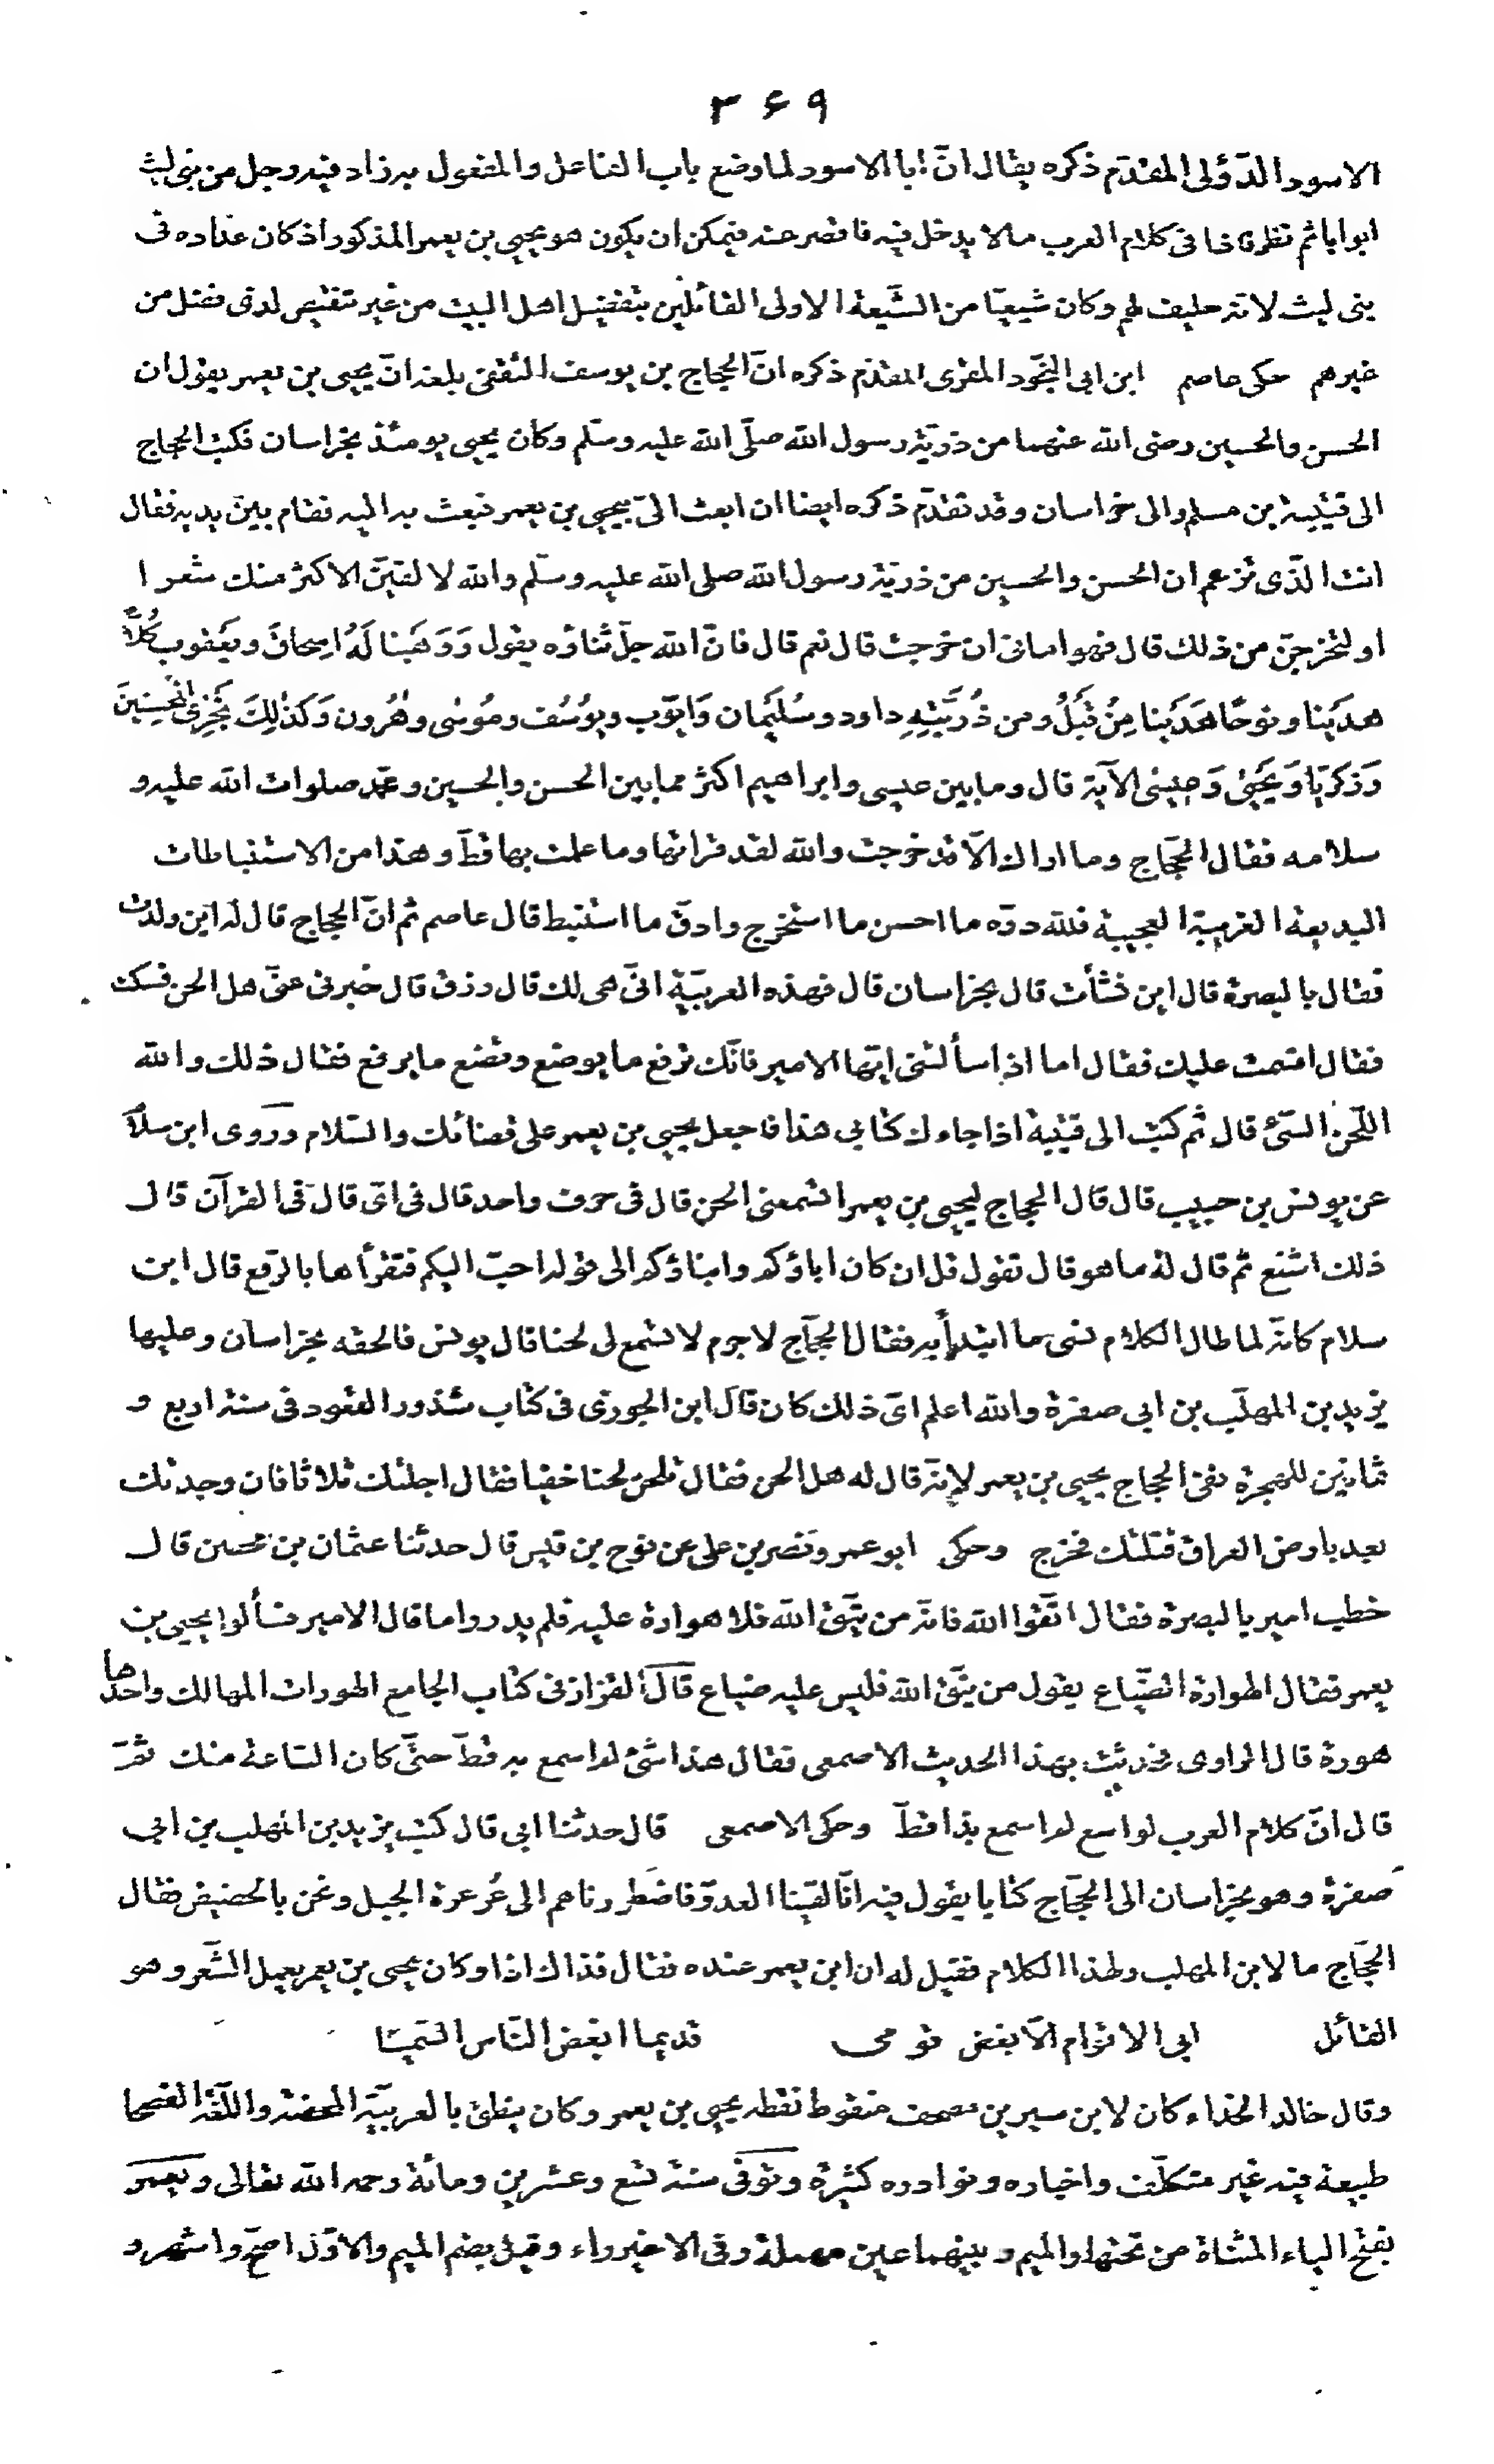 ۳۶۹
الاسود الدّؤلى المقدّم ذكره يقال انّ ابا الاسود لما وضع باب الفاعل والمفعول به زاد فيه رجل من بنى ليث
ابوابا ثم نظر فاذا فى كلام العرب مالا يدخل فيه فاقصر عنه فيمكن ان يكون هو يحيى بن يعمر المذكور اذ كان عداده فى
بنى ليث لانه حليف لهم وكان شيعيّا من الشّيعة الاولى القائلين بتفضيل اهل البيت من غير تنقيص لذى فضل من
غيرهم حكى عاصم ابن ابى النجّود المقرى المقدّم ذكره انّ الحجاج بن يوسف الثقفى بلغه انّ يحيى بن يعمر يقول ان
الحسن والحسين رضى الله عنهما من ذرّيّة رسول الله صلّى الله عليه وسلّم وكان يحيى يومئذ بخراسان فكتب الحجاج
الى قتيبة بن مسلم والى خراسان وقد تقدّم ذكره ايضا ان ابعث الىّ بيحيى بن يعمر فبعث به اليه فقام بين يديه فقال
انت الّذى تزعم ان الحسن والحسين من ذريّة رسول الله صلى الله عليه وسلّم والله لالقينّ الاكثر منك شعرا
او لتخرجنّ من ذلك قال فهو امانى ان خرجت قال نعم قال فانّ الله جلّ ثناؤه يقول وَوَهَبنا لَهُ اِسحاقَ ويَعقوب كُلّاً
هدَينا ونوحًا هَدَينا مِنْ قَبلُ ومن ذُرّيَّتِهِ داود وسُليَمان وَايّوب ويوُسُف ومُوسٰى وهٰرُون وَكَذٰلِكَ نَجْزِى المُحْسِنينَ
وَزكريّا وَيَحيٰى وَعِيسٰى الآية قال وما بين عيسى وابراهيم اكثر مما بين الحسن والحسين ومحمّد صلوات الله عليه و
سلامه فقال الحجّاج وما اراك الّا قد خرجت والله لقد قراتها وما علمت بها قطّ وهذا من الاستنباطات
البديعة الغريبة العجيبة فللّه درّه ما احسن ما استخرج وادقّ ما استنبط قال عاصم ثم انّ الحجاج قال له اين ولدت
فقال بالبصرة قال اين نشأت قال بخراسان قال فهذه العربيّة انّى هى لك قال رزق قال خبرنى عنّى هل الحن فسكت
فقال اقسمت عليك فقال اما اذ اسألتنى ايّها الامير فانّك ترفع ما يوضع وتضع ما يرفع فقال ذلك والله
اللّحن السّيّئ قال ثم كتب الى قتيبة اذا جاءك كتابى هذا فاجعل يحيى بن يعمر على قضائك والسّلام وروى ابن سلّا
عن يونس بن حبيب قال قال الحجاج ليحيى بن يعمر اتسمعنى الحن قال فى حرف واحد قال فى اىّ قال فى القرآن قال
ذلك اشنع ثم قال له ما هو قال تقول قل ان كان اباؤكم وابناؤكم الى قوله احبّ اليكم فتقرأها بالرّفع قال ابن
سلام كانه لما طال الكلام نسى ما ابتدأ به فقال الحجّاج لا جرم لا تسمع لى لحنا قال يونس فالحقه بخراسان وعليها
يزيد بن المهلّب بن ابى صفرة والله اعلم اىّ ذلك كان قال ابن الجوزى فى كتاب شذور العقود فى سنة اربع و
ثمانين للهجرة نفى الحجاج يحيى بن يعمر لانّه قال له هل الحن فقال تلحن لحنا خفيا فقال اجلتك ثلاثا فان وجدتك
بعد بارض العراق قتلتك فخرج وحكى ابو عمرو نصر بن على عن نوح بن قيس قال حدثنا عثمان بن محصن قال
خطب امير بالبصرة فقال اتّقوا الله فانه من يتّق الله فلا هوارة عليه فلم يدروا ما قال الامير فسألوا يحيى بن
يعمر فقال الهوارة الضّياع يقول من يتّق الله فليس عليه ضياع قال القزاز فى كتاب الجامع الهورات المهالك واحدها
هورة قال الراوى فحدثت بهذا الحديث الاصمعى فقال هذا شئ لم اسمع به قطّ حتّى كان السّاعة منك ثمّ
قال انّ كلام العرب لواسع لم اسمع بذا قطّ وحكى الاصمعى قال حدثنا ابى قال كتب يزيد بن المهلب بن ابى
صفرة وهو بخراسان الى الحجّاج كتابا يقول فيه انّا لقينا العدوّ فاضطررناهم الى عُرعرة الجبل ونحن بالحضيض فقال
الحجّاج ما لابن المهلب ولهذا الكلام فقيل له ان ابن يعمر عنده فقال فذاك اذا وكان يحيى بن يعمر يعمل الشّعر وهو
القائل ابى الاقوام الّا بغض قومى قديما ابغض النّاس السّمينا
وقال خالد الحذاء كان لابن سيرين مصحف منقوط نقطه يحيى بن يعمر وكان ينطق بالعربيّة المحضة واللّغة الفصحا
طبيعة فيه غير متكلّف واخباره ونوادره كثيرة وتوفّى سنة تسع وعشرين ومائة رحمه الله تعالى ويعمر
بفتح الياء المثناة من تحتها والميم وبينهما عين مهملة وفى الاخير راء وقيل بضم الميم والاوّل اصحّ واشهر و